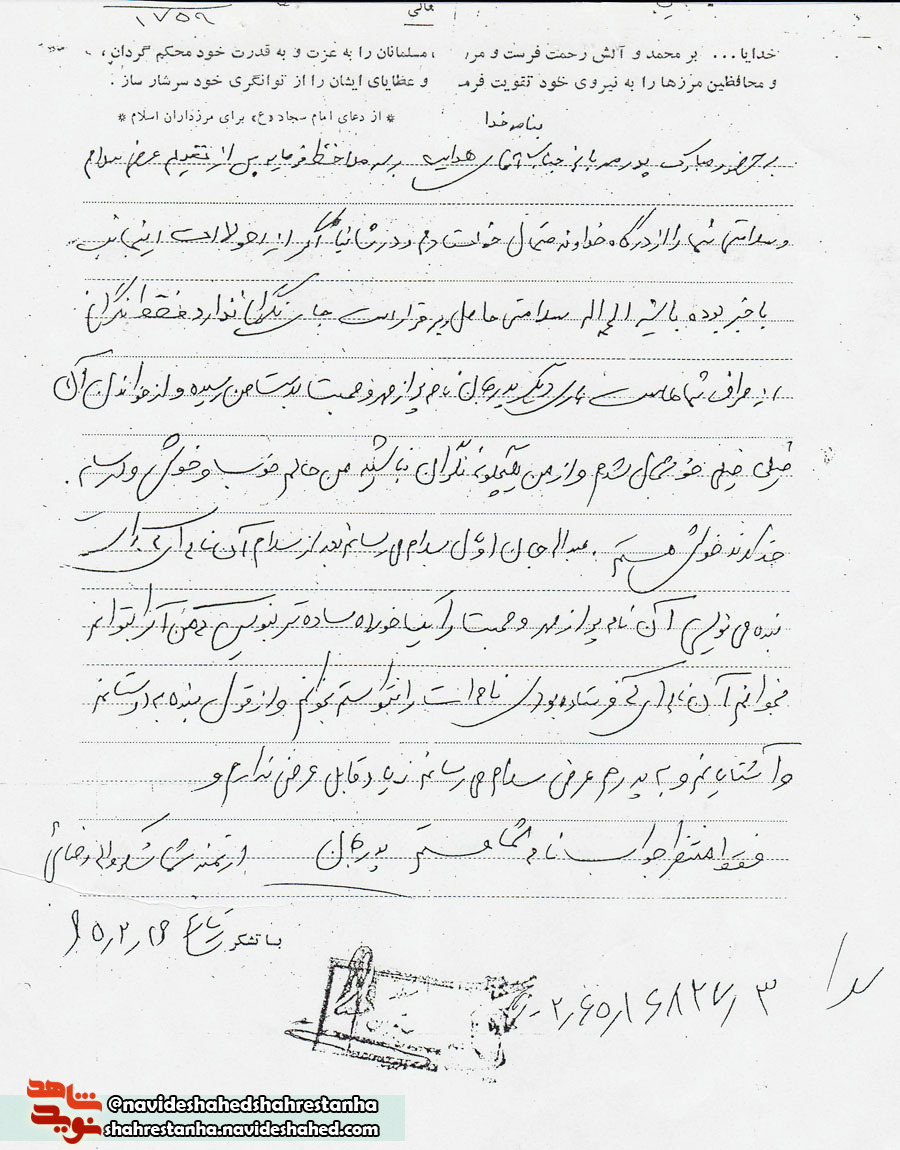 ۱۷۵۹
خدایا... بر محمد و آلش رحمت فرست و مر، ، مسلمانان را به عزت و به قدرت خود محکم گردان،
و محافظین مرزها را به نیروی خود تقویت فرمـ و عطایای ایشان را از توانگری خود سرشار ساز.
* از دعای امام سجاد (ع) برای مرزداران اسلام *
بنام خدا
به حضور مبارک پدر مهربانم جناب آقای برسد ملاحظه فرماید پس از تقدیم عرض سلام
و سلامتی شما را از درگاه خداوند متعال خواستارم و در ثانی اگر از احوالات اینجانب
با خبر بوده باشید الحمداله سلامتی حاصل و برقرار است جای نگرانی ندارد فقط نگرانی
از طرف شماهاست باری دیگر پدر جان نامه پر از مهر و محبت بدست من رسیده و از خواندن آن
خیلی خیلی خوشحال شدم و از من هیچگونه نگران نباشید من حالم خوب و خوش و
خوش هستم . جان اول سلام می رسانم بعد از سلام آن نامه ای که برای
بنده می نویسی آن نامه پر از مهر و محبت را یک ساده تر بنویس که من آنرا بتوانم
بخوانم آن نامه ای که فرستاده بودی نامه ات را نتوانستم بخوانم و از قول بنده به دوستانم
و آشنایانم و به پدرم عرض سلام می رسانم زیاد قابل عرض ندارم و
فقط منتظر جواب نامه شما هستم پدر جان ارادتمند شما رضائی
با تشکر تاریخ
شاهد
نوید
@navideshahedshahrestanha
shahrestanha.navideshahed.com